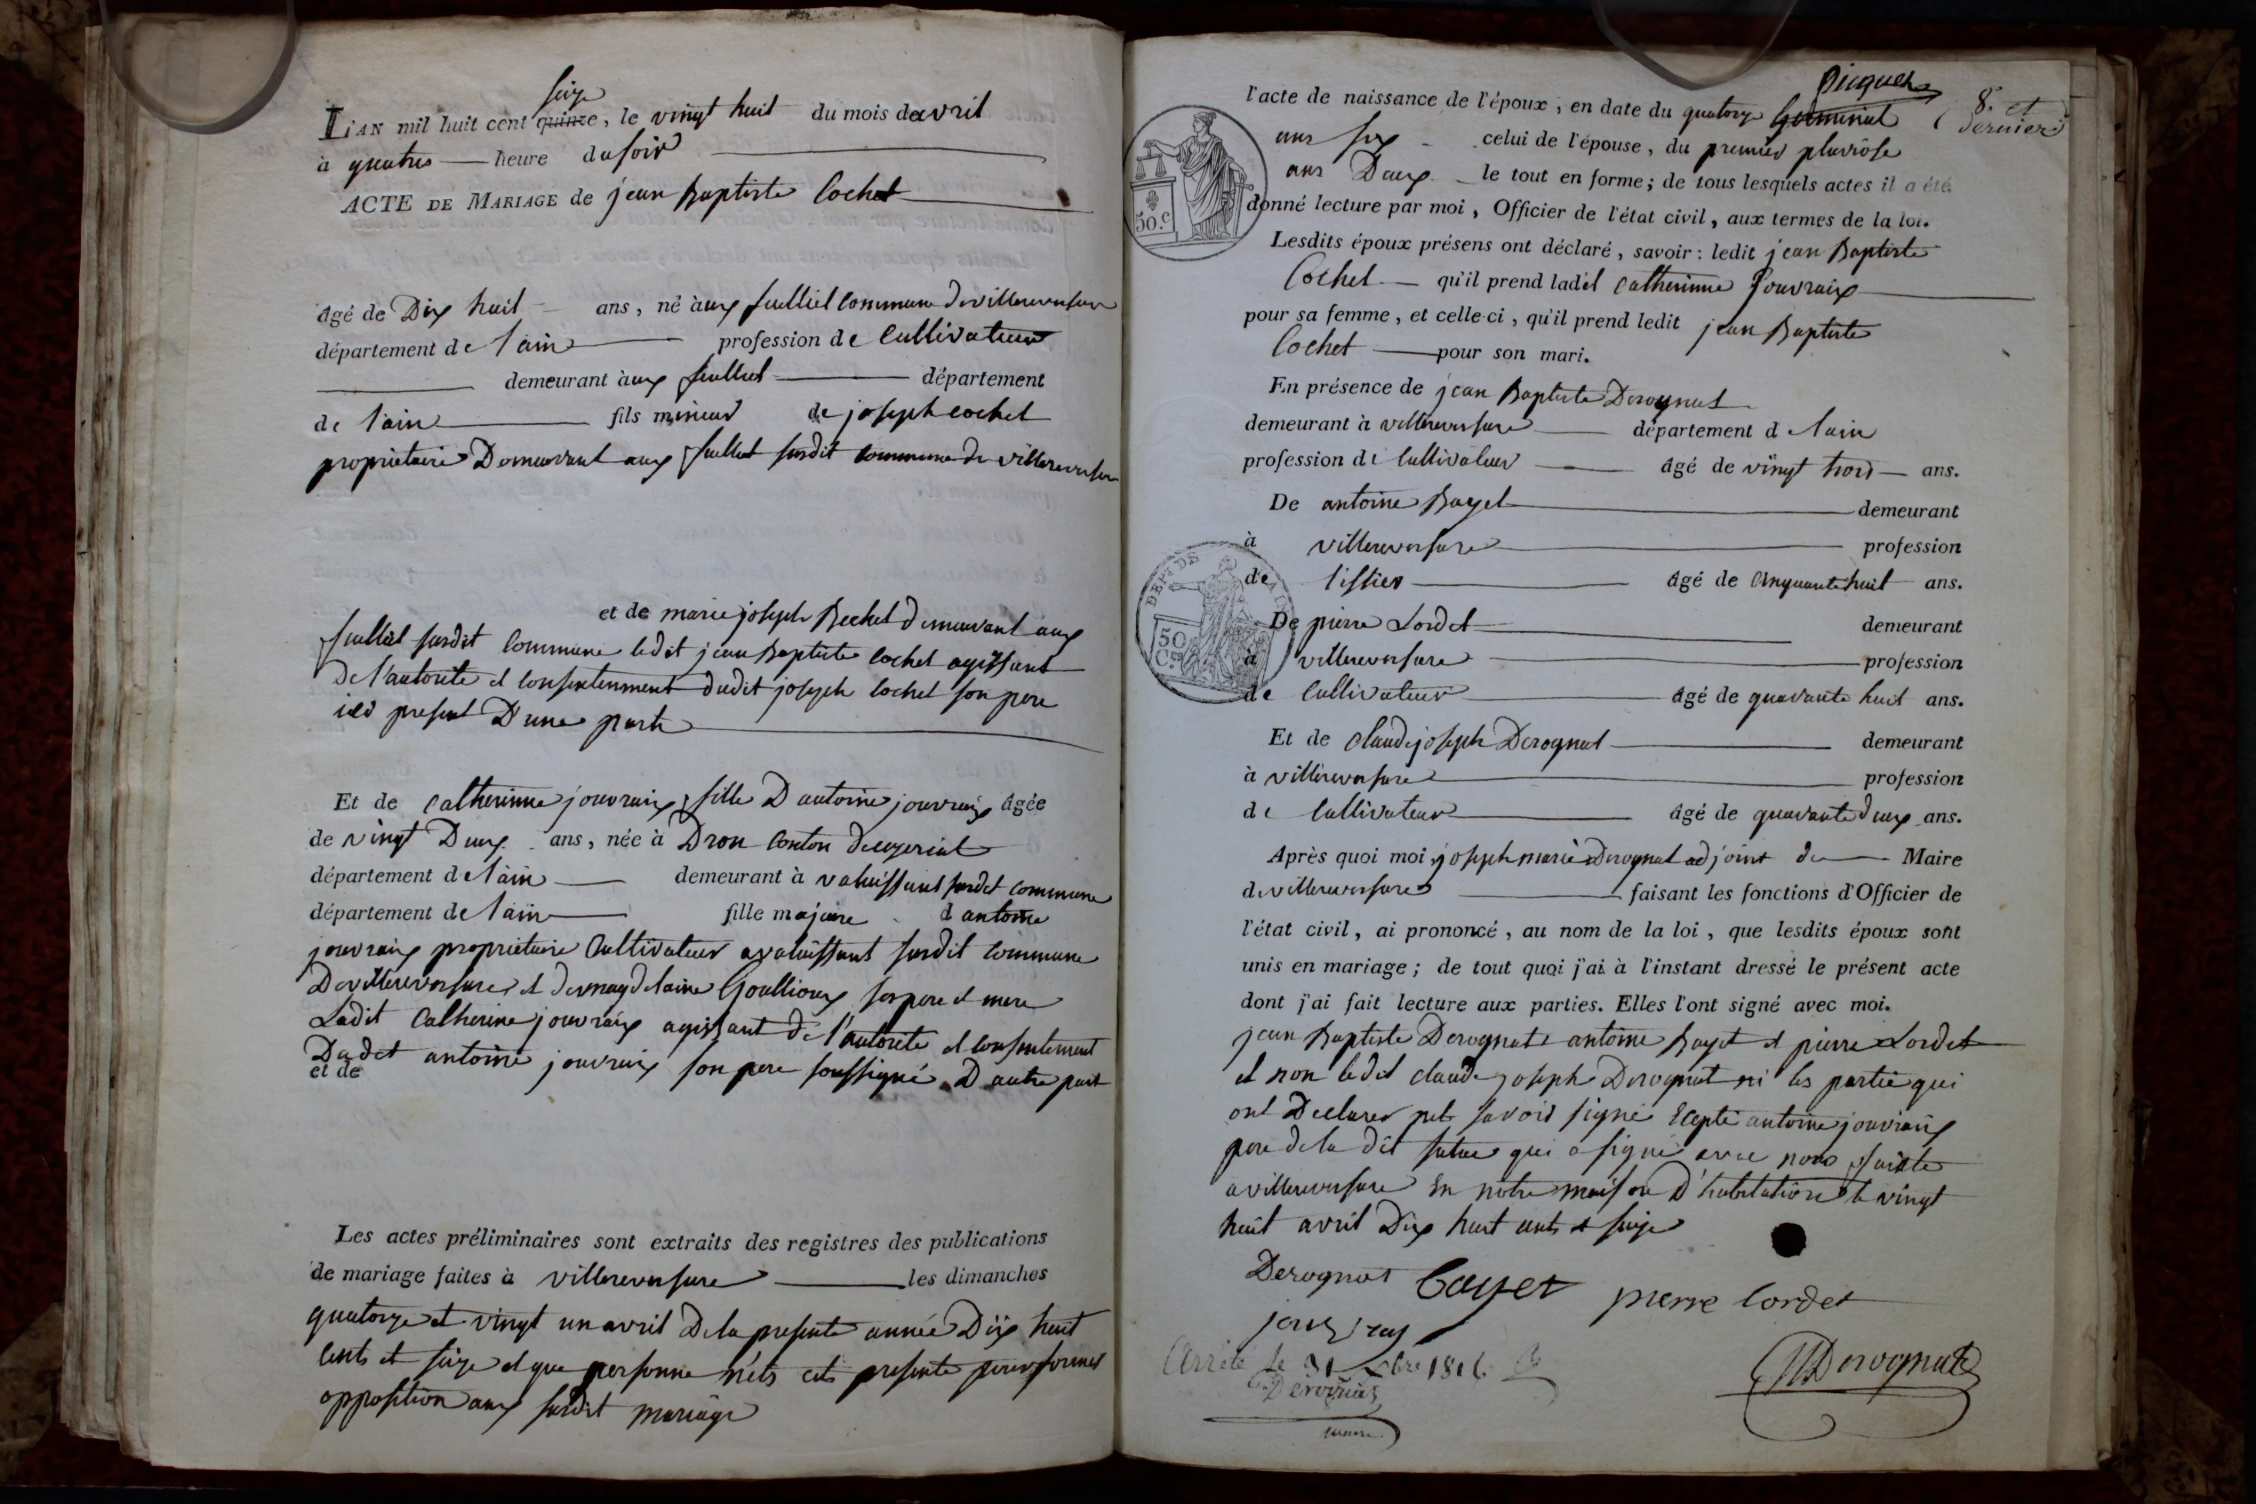 seize
L'AN mil huit cent quinze, le vingt huit du mois d'avril
à quatres heure du soir
ACTE DE MARIAGE de jean Baptiste Cochet
âgé de Dix huit ans, né àux fulliet Commune de villereversure
département de l'ain profession de Cultivateur
demeurant àux fulliet département
de l'ain fils mineur de joseph cochet
proprietaire Demeurant aux fulliet susdit commune de villereversure
et de marie joseph Bechet demeurant aux
fulliet susdit Commune ledit jean Baptiste cochet agissant
De l'autorité et consentenment dudit joseph cochet son pere
ici present D'une part
Et de Catherinne jouvraix fille D'antoine jouvraix âgée
de vingt Deux ans, née à Dron Canton de ceyzeriat
département de l'ain demeurant à valuissant susdit commune
département de l'ain fille majeure d'antoine
jouvraix proprietaire Cultivateur a valuissant susdit commune
De villereversure et de magdelaine Goullioux ses pere et mere
Ladit Catherine jouvraix agissant de l'autorité et consentement
Dudit antoine jouvraix son pere soussigné D'autre part
et de
Les actes préliminaires sont extraits des registres des publications
de mariage faites à villereversure les dimanches
quatorze et vingt un avril De la presente année Dix huit
cents et seize et que personne n'ets ets presente pour former
opposition aux susdit mariage
8e et
dernier
l'acte de naissance de l'époux, en date du quatorze Germinal
ans six celui de l'épouse, du premier pluviôse
ans Deux le tout en forme; de tous lesquels actes il a été
donné lecture par moi, Officier de l'état civil, aux termes de la loi.
50.c
Lesdits époux présens ont déclaré, savoir: ledit jean Baptiste
Cochet qu'il prend ladit Catherinne Jouvraix
pour sa femme, et celle-ci, qu'il prend ledit jean Baptiste
Cochet pour son mari.
En présence de jean Baptiste Derognat
demeurant à villereversure département d l'ain
profession de Cultivateur âgé de vingt trois ans.
De antoine Bayet demeurant
à villereversure profession
de tissier âgé de Cinquante huit ans.
De pierre Lordet demeurant
à villereversure profession
de Cultivateur âgé de quarante huit ans.
DÉPt DE
50
Ces
Et de Claude joseph Derognat demeurant
à villereversure profession
de Cultivateur âgé de quarante deux ans.
Après quoi moi, joseph marie Derognat adjoint du Maire
de villereversure faisant les fonctions d'Officier de
l'état civil, ai prononcé, au nom de la loi, que lesdits époux sont
unis en mariage; de tout quoi j'ai à l'instant dressé le présent acte
dont j'ai fait lecture aux parties. Elles l'ont signé avec moi.
jean Baptiste Derognat antoine Bayet et pierre Lordet
et non ledit claude joseph Derognat ni les partie qui
ont Declarer pets savoir signé Excepté antoine jouvraix
pere de la dit future qui a signé avec nous faiste
a villereversure En notre maison D'habitation le vingt
huit avril Dix huit cents et seize
Derognat Bayet pierre Lordet
jouvray
Derognat
Arrêté le 31 Xbre 1816